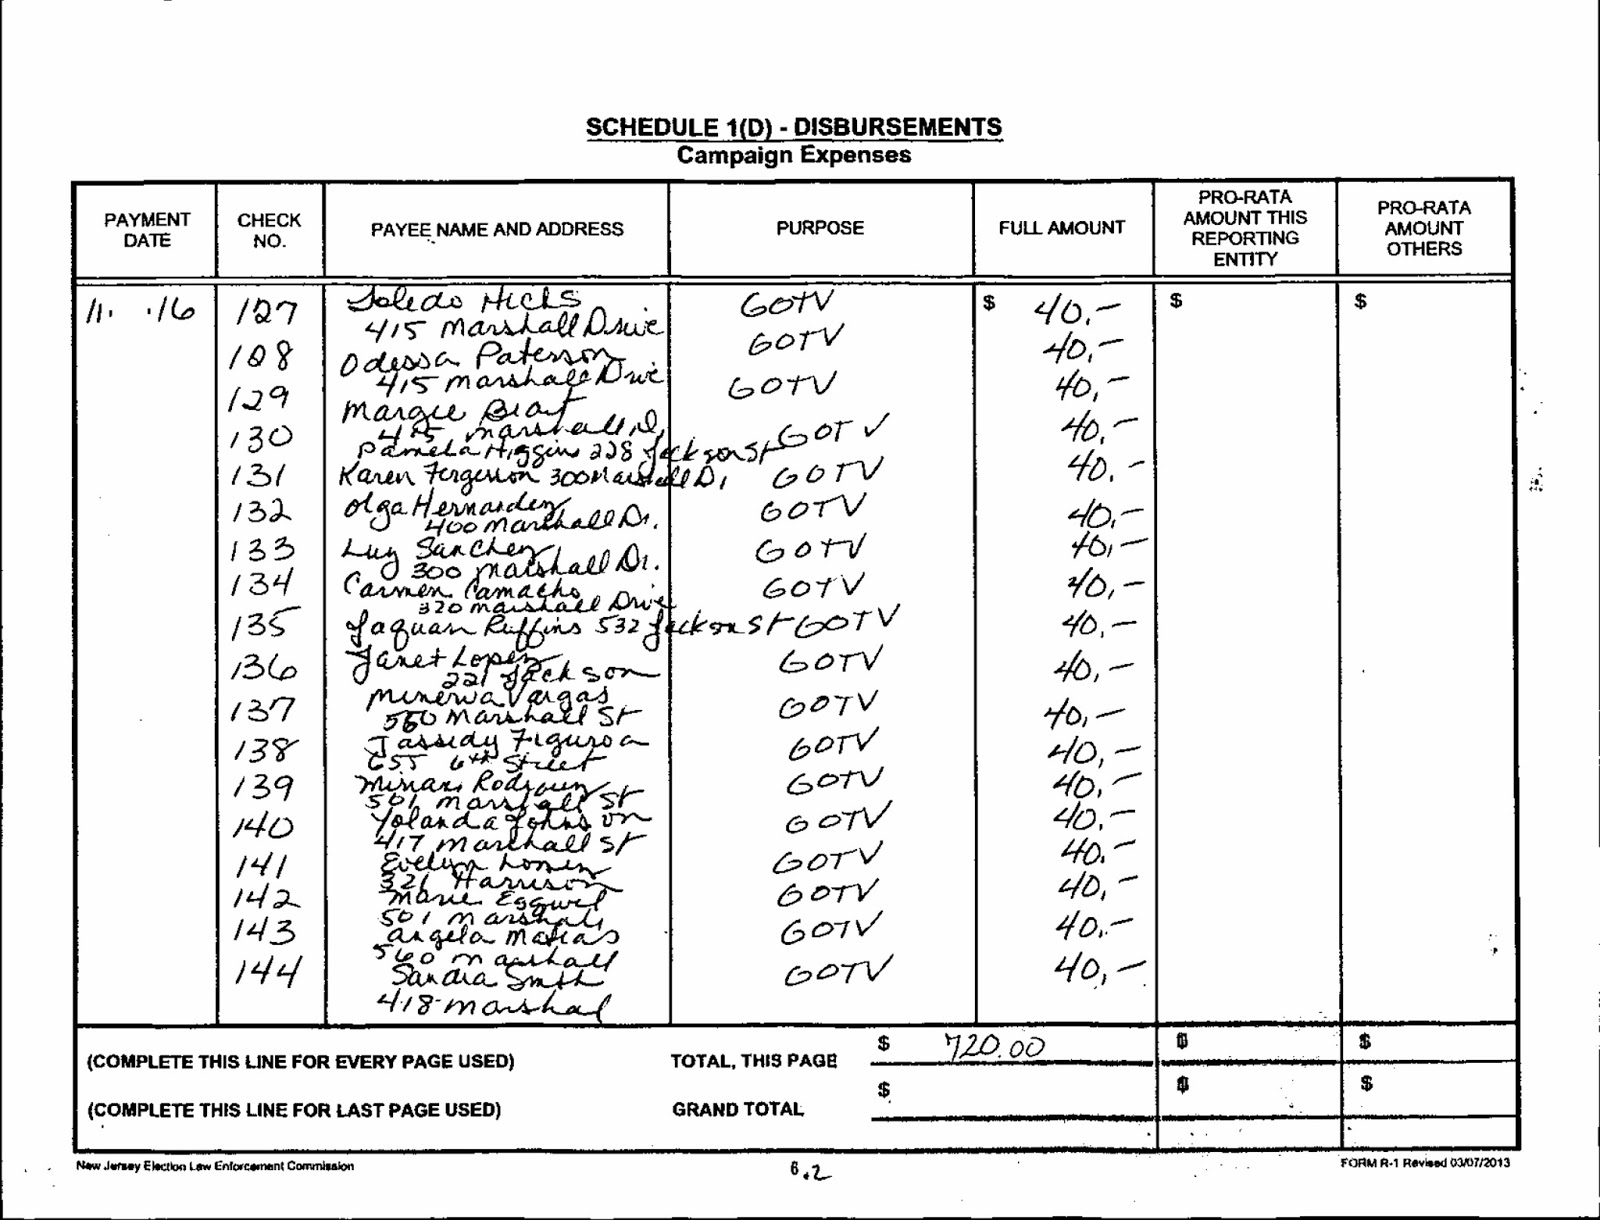 SCHEDULE 1(D) - DISBURSEMENTS
Campaign Expenses
PAYMENT DATE CHECK NO. PAYEE NAME AND ADDRESS PURPOSE FULL AMOUNT PRO-RATA AMOUNT THIS REPORTING ENTITY PRO-RATA AMOUNT OTHERS
11. .16 127 Toledo Hicks GOTV $ 40.- $ $
415 Marshall Drive
128 Odessa Paterson GOTV 40,-
415 Marshall Drive
129 Margie GOTV 40,-
415 Marshall D,
130 Pamela Higgins 228 Jackson St GOTV 40,-
131 Karen Fergerson 300 Marshall D, GOTV 40.-
132 Olga Hernandez GOTV 40,-
400 Marshall Dr.
133 Luz Sanchez GOTV 40,-
300 Marshall Dr.
134 Carmen Camacho GOTV 40,-
320 Marshall Drive
135 Jaquan Ruffins 532 Jackson St GOTV 40,-
136 Janet Lopez GOTV 40,-
221 Jackson
137 Minerva Vargas GOTV 40,-
560 Marshall St
138 Jassidy Figuroa GOTV 40,-
655 6th Street
139 GOTV 40,-
501 Marshall St
140 Yolanda Johnson GOTV 40.-
417 Marshall St
141 Evelyn Lopez GOTV 40.-
321 Harrison
142 Marie GOTV 40,-
501 Marshall
143 Angela Matias GOTV 40.-
560 Marshall
144 Sandra Smith GOTV 40,-
418 Marshal
(COMPLETE THIS LINE FOR EVERY PAGE USED) TOTAL, THIS PAGE $ 720.00 $ $
(COMPLETE THIS LINE FOR LAST PAGE USED) GRAND TOTAL $ $ $
New Jersey Election Law Enforcement Commission 6.2 FORM R-1 Revised 03/07/2013